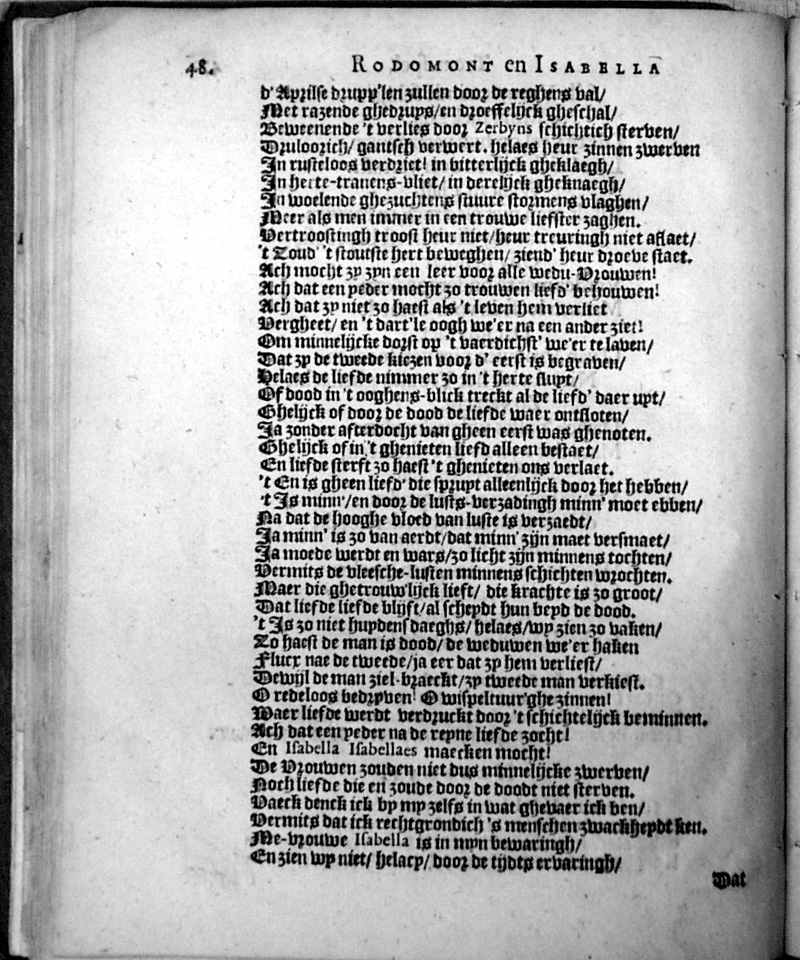 48. RODOMONT en ISABELLA
d' Aprilse drupp'len zullen door de reghens val/
Met razende ghedrups/en droeffelijck gheschal/
Beweenende 't verlies door Zerbyns schichtich sterven/
Druloorich/ gantsch verwert. helaes heur zinnen zwerven
In rusteloos verdriet! in bitterlijck gheklaegh/
In herte-tranens-vliet/ in derelijck gheknaegh/
In woelende ghezuchtens stuure stormens vlaghen/
Meer als men immer in een trouwe liefster zaghen.
Vertroostingh troost heur niet/heur treuringh niet aflaet/
't Zoud' 't stoutste hert beweghen/ ziend' heur droeve staet.
Ach mocht zy zyn een leer voor alle wedu-Vrouwen!
Ach dat een yeder mocht zo trouwen liefd' behouwen!
Ach dat zy niet zo haest als 't leven hem verliet
Vergheet/ en 't dart'le oogh we'er na een ander ziet!
Om minnelijcke dorst op 't vaerdichst' we'er te laven/
Dat zy de tweede kiezen voor d' eerst is begraven/
Helaes de liefde nimmer zo in 't herte slupt/
Of dood in 't ooghens-blick treckt al de liefd' daer upt/
Ghelijck of door de dood de liefde waer ontsloten/
Ja zonder afterdocht van gheen eerst was ghenoten.
Ghelijck of in 't ghenieten liefd alleen bestaet/
En liefde sterft zo haest 't ghenieten ons verlaet.
't En is gheen liefd' die spruyt alleenlijck door het hebben/
't Is minn'/en door de lusts-verzadingh minn' moet ebben/
Na dat de hooghe vloed van luste is verzaedt/
Ja minn' is zo van aerdt/dat minn' zijn maet versmaet/
Ja moede werdt en wars/zo licht zijn minnens tochten/
Vermits de vleesche-lusten minnens schichten wrochten.
Maer die ghetrouw'lijck lieft/ die krachte is zo groot/
Dat liefde liefde blijft/al scheydt hun beyd de dood.
't Is zo niet huydensdaeghs/ helaes/wy zien zo vaken/
Zo haest de man is dood/ de weduwen we'er haken
Flucx nae de tweede/ja eer dat zy hem verliest/
Dewijl de man ziel-braeckt/zy tweede man verkiest.
O redeloos bedryven! O wispeltuur'ghe zinnen!
Waer liefde werdt verdruckt door 't schichtelijck beminnen.
Ach dat een yeder na de reyne liefde zocht!
En Isabella Isabellaes maecken mocht!
De Vrouwen zouden niet dus minnelijcke zwerven/
Noch liefde die en zoude door de doodt niet sterven.
Vaeck denck ick by my zelfs in wat ghevaer ick ben/
Vermits dat ick rechtgrondich 's menschen zwackheydt ken.
Me-vrouwe Isabella is in myn bewaringh/
En zien wy niet/ helacy/ door de tijdts ervaringh/
Dat